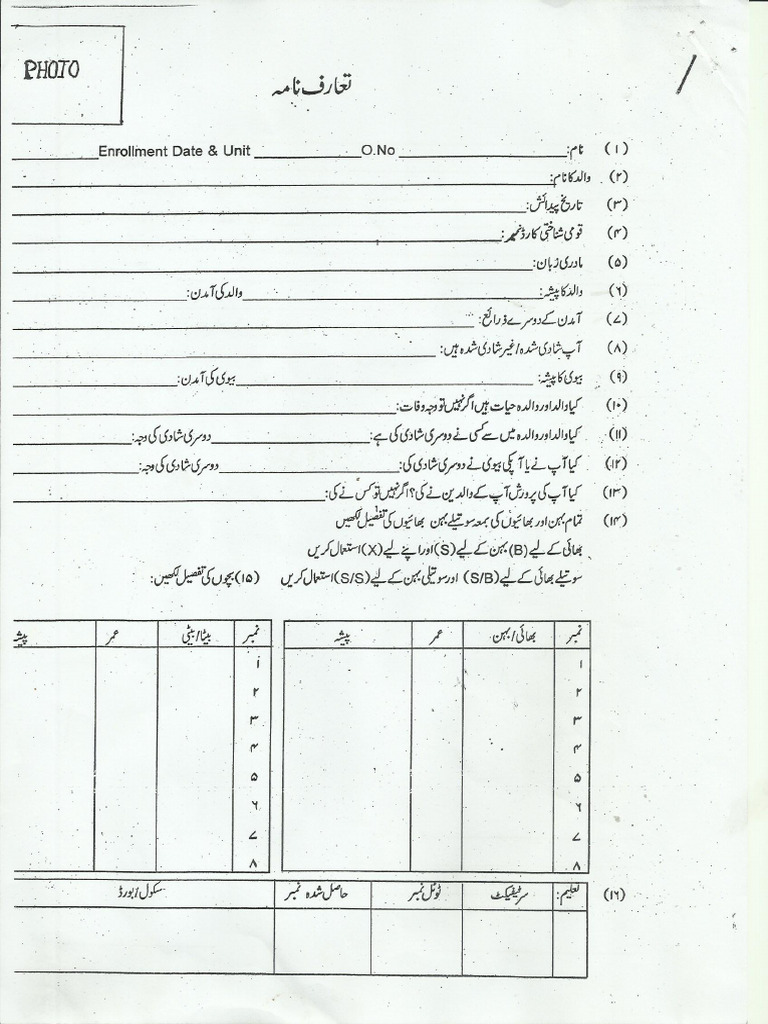 PHOTO
تعارف نامہ
(۱) نام: O.No Enrollment Date & Unit
(۲) والد کا نام:
(۳) تاریخ پیدائش:
(۴) قومی شناختی کارڈ نمبر:
(۵) مادری زبان:
(۶) والد کا پیشہ: والد کی آمدن:
(۷) آمدن کے دوسرے ذرائع:
(۸) آپ شادی شدہ/غیر شادی شدہ ہیں:
(۹) بیوی کا پیشہ: بیوی کی آمدن:
(۱۰) کیا والد اور والدہ حیات ہیں اگر نہیں تو وجہ وفات:
(۱۱) کیا والد اور والدہ میں سے کسی نے دوسری شادی کی ہے: دوسری شادی کی وجہ:
(۱۲) کیا آپ نے یا آپکی بیوی نے دوسری شادی کی: دوسری شادی کی وجہ:
(۱۳) کیا آپ کی پرورش آپ کے والدین نے کی؟ اگر نہیں تو کس نے کی:
(۱۴) تمام بہن اور بھائیوں کی بمعہ سوتیلے بہن بھائیوں کی تفصیل لکھیں
بھائی کے لیے (B) بہن کے لیے (S) اور اپنے لیے (X) استعمال کریں
سوتیلے بھائی کے لیے (S/B) اور سوتیلی بہن کے لیے (S/S) استعمال کریں (۱۵) بچوں کی تفصیل لکھیں:
نمبر بھائی/بہن عمر پیشہ نمبر بیٹا/بیٹی عمر پیشہ
۱ ۱
۲ ۲
۳ ۳
۴ ۴
۵ ۵
۶ ۶
۷ ۷
۸ ۸
(۱۶) تعلیم: سرٹیفکیٹ ٹوٹل نمبر حاصل شدہ نمبر سکول/بورڈ